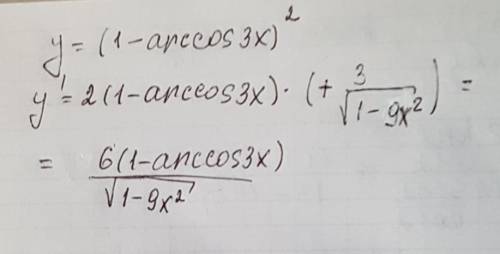 y = (1 - arccos 3x)²
y' = 2(1 - arccos 3x) · (+ 3/√(1 - 9x²)) =
= 6(1 - arccos 3x)/√(1 - 9x²)